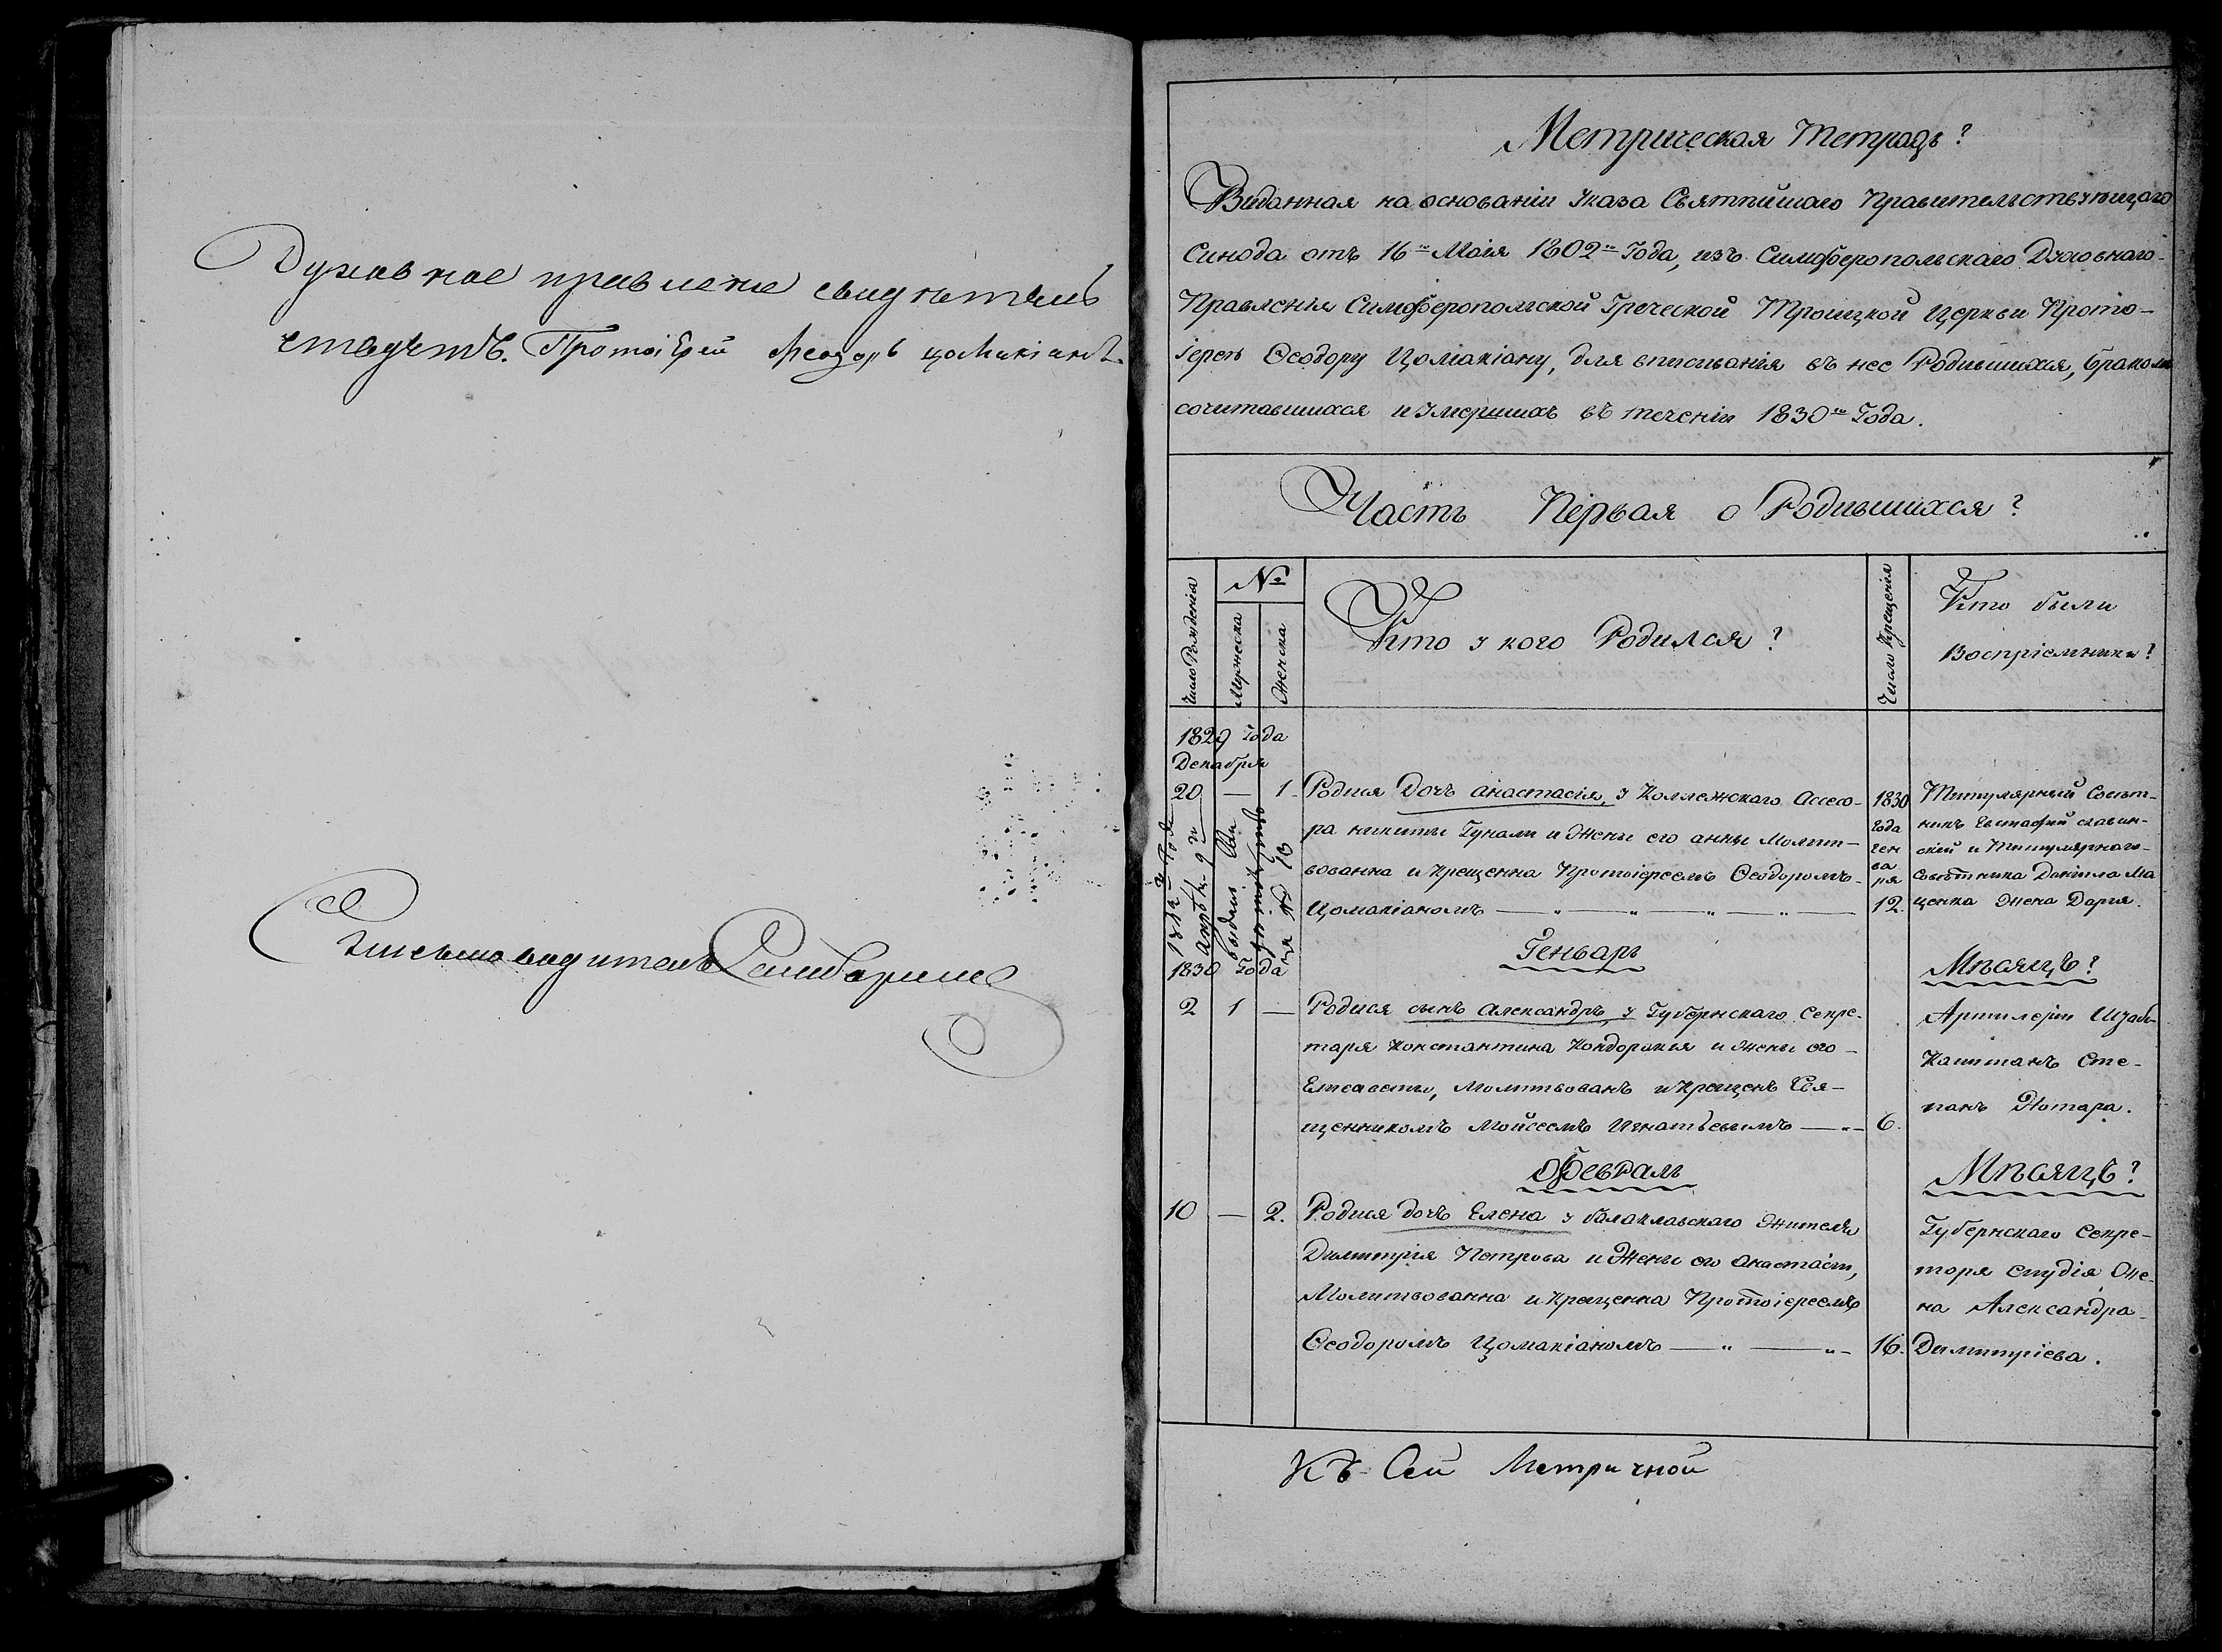 Духовное правление свидетель
ствуетъ. Протоіерей Ѳеодоръ Цомакіанъ
Письмоводитель
Метрическая Тетрадь?
Виданная на основаніи Указа Святѣйшаго Правительствующаго
Синода отъ 16го Маія 1802го Года, изъ Симферопольскаго Духовнаго
Правленія Симферопольской Греческой Троицкой Церкви Прото-
іерею Ѳеодору Цомакіану, для вписыванія въ нее Родившихся, бракомъ
сочитавшихся и Умершихъ въ теченіи 1830го Года.
Часть Первая о Родившихся?
Число Рожденія
№
Мужеска
Женска
Кто у кого Родился?
Число Крещенія
Кто были
Воспріемники?
1829 Года
Декабря
20 — 1. Родися Дочь анастасія, у Коллежскаго Ассесо-
ра никиты Гунали и Жены его анны Молит-
вованна и Крещенна Протоіереемъ Ѳеодоромъ
Цомакіаномъ
1830
Года
ген
ва
ря
12.
Титулярный Совѣт-
никъ Евстафій славин-
скій и Титулярнаго
Совѣтника Даніила Ма
ценка Жена Дарія.
Геньварь
Мѣсяцъ?
1830 Года
2 1 — Родися сынъ Александръ, у Губернскаго Секре-
таря Константина Кондоракія и Жены его
Елисаветы, Молитвованъ и Крещенъ Свя-
щенникомъ Мойсеемъ Игнатьевымъ 6.
Артилеріи Штабъ
Капитанъ Сте-
панъ Нотара.
Февраль
Мѣсяцъ?
10 — 2. Родися дочь Елена у балаклавскаго Жителя
Димитрія Петрова и Жены его Анастасіи,
Молитвованна и Крещенна Протоіереемъ
Ѳеодоромъ Цомакіаномъ 16.
Губернскаго Секре-
таря Спудія Же-
на Александра
Димитріева.
Къ Сей Метричной